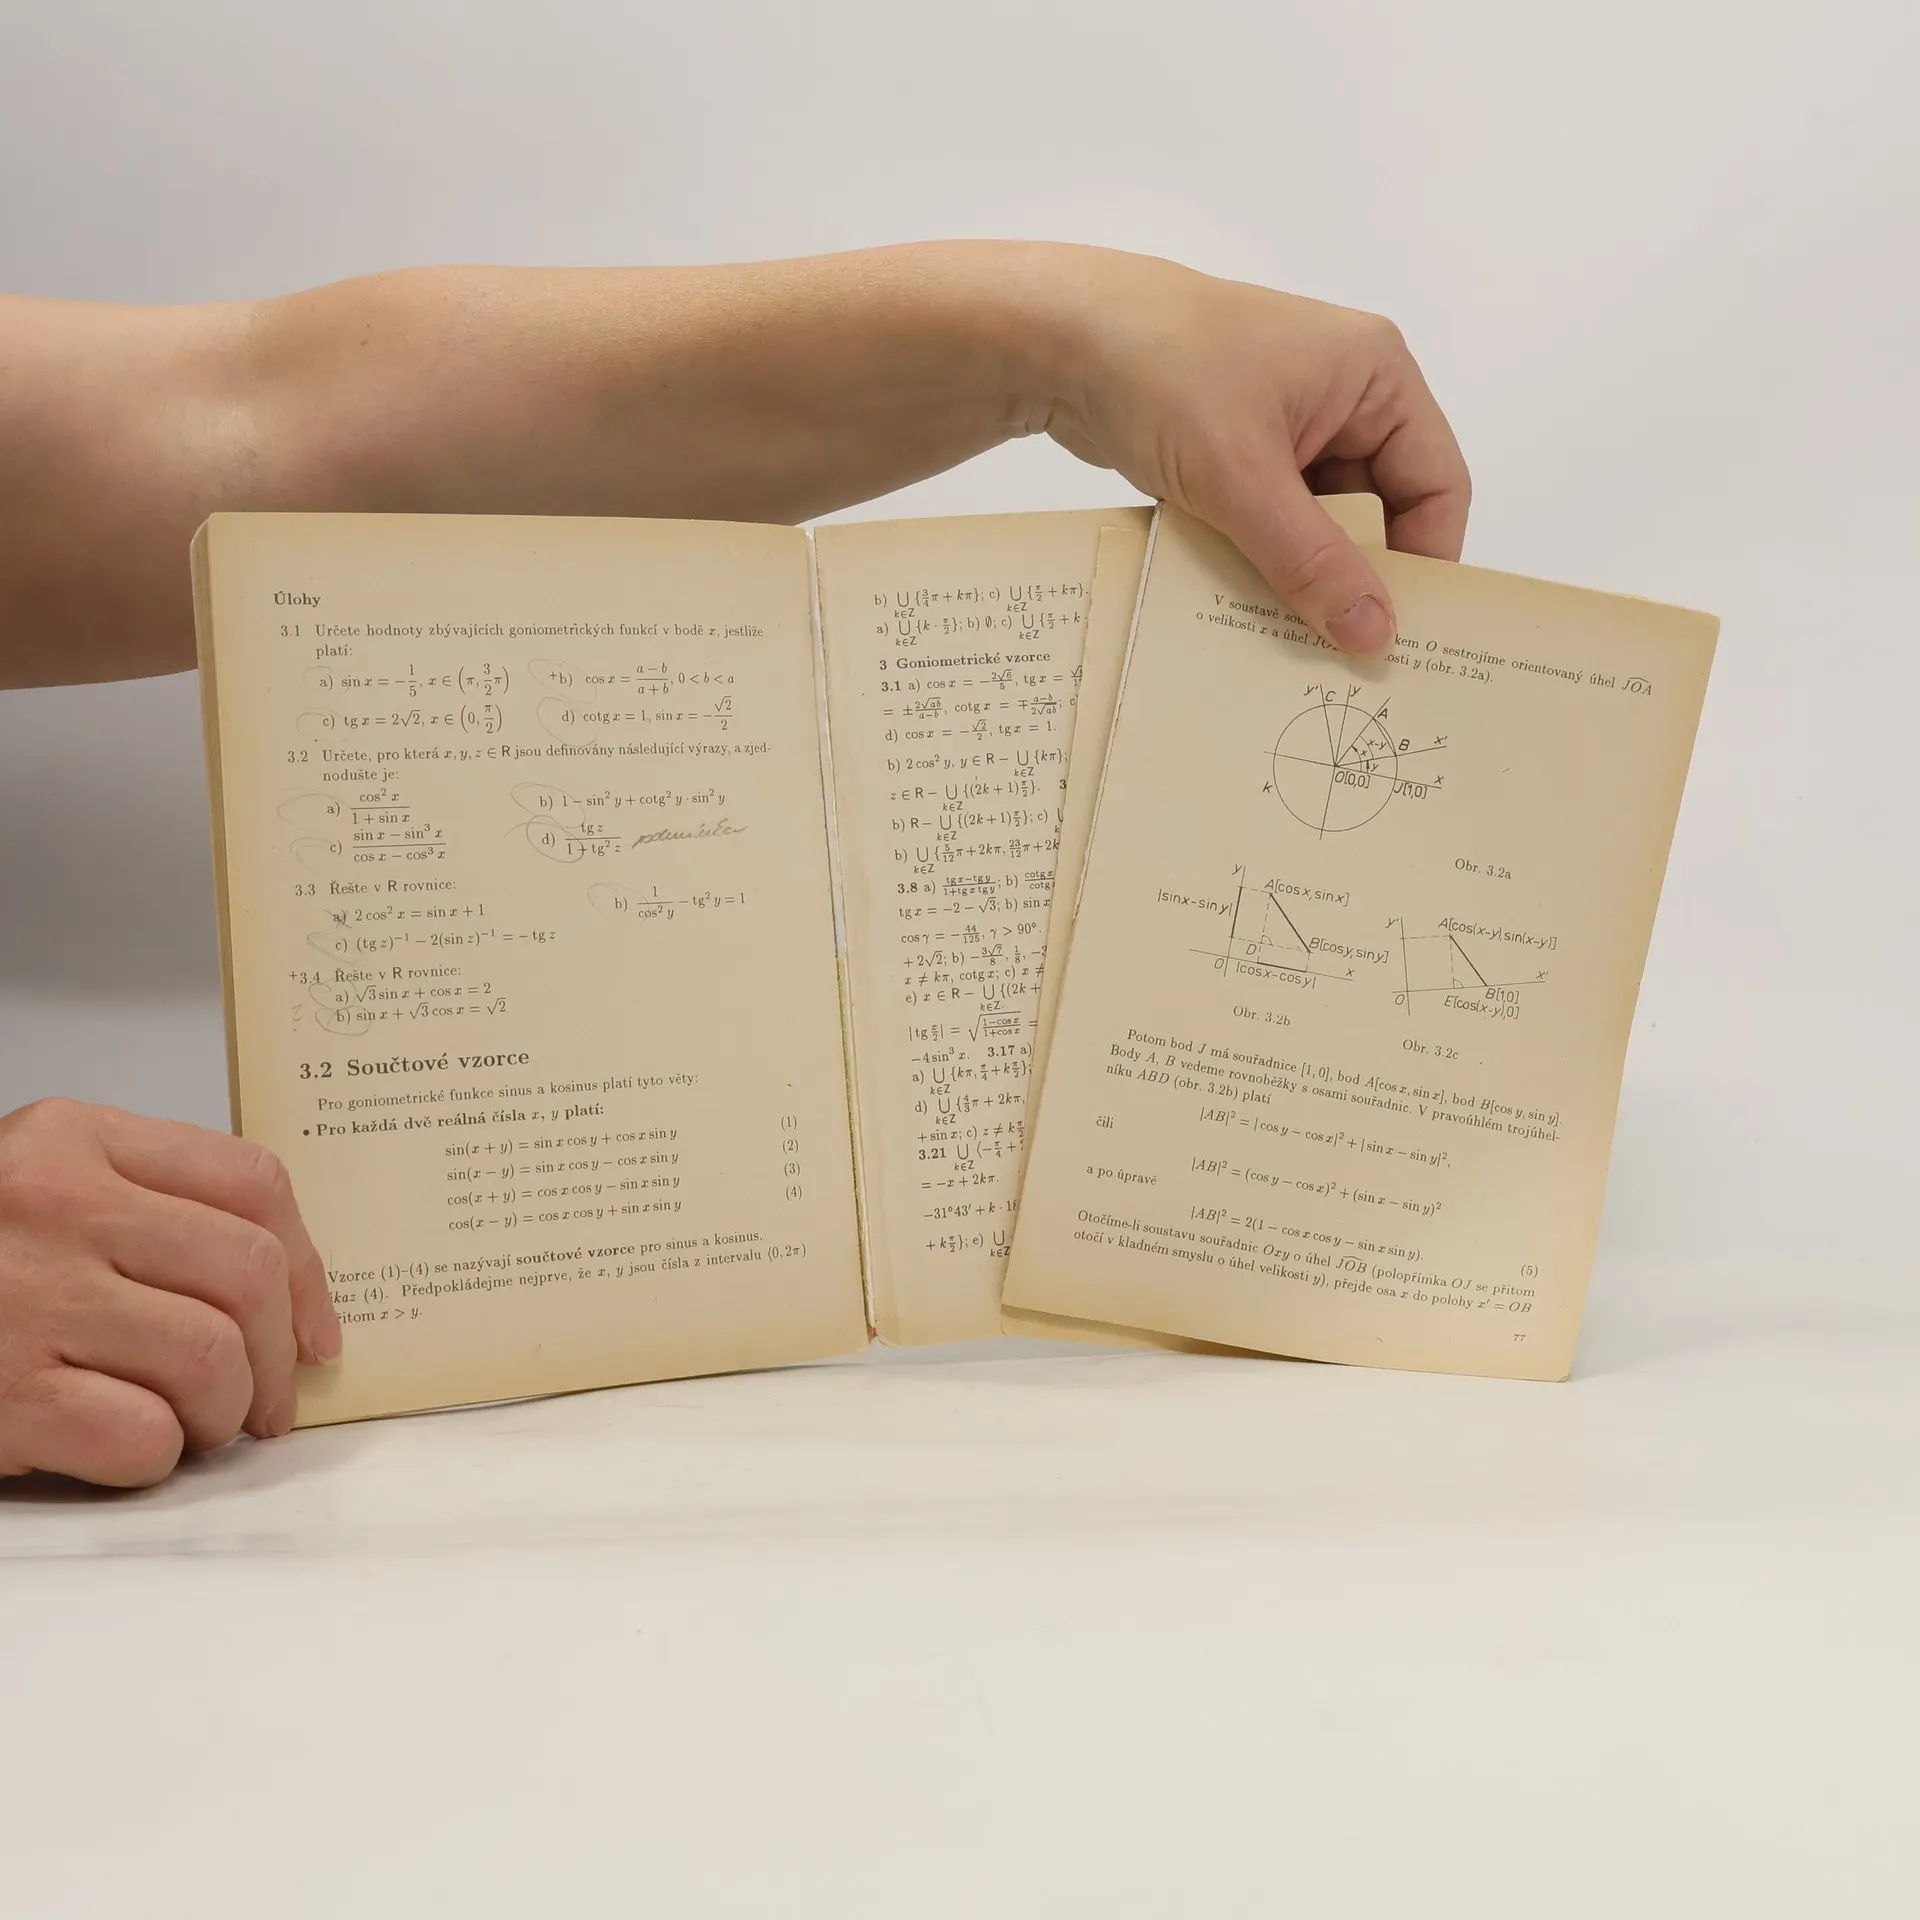 Úlohy
3.1 Určete hodnoty zbývajících goniometrických funkcí v bodě x, jestliže
platí:
a) sin x = −1/5, x ∈ (π, 3/2 π) +b) cos x = (a − b)/(a + b), 0 < b < a
c) tg x = 2√2, x ∈ (0, π/2) d) cotg x = 1, sin x = −√2/2
3.2 Určete, pro která x, y, z ∈ R jsou definovány následující výrazy, a zjed-
nodušte je:
a) cos² x/(1 + sin x) b) 1 − sin² y + cotg² y · sin² y
c) (sin x − sin³ x)/(cos x − cos³ x) d) tg z/(1 + tg² z)
3.3 Řešte v R rovnice:
a) 2 cos² x = sin x + 1 b) 1/cos² y − tg² y = 1
c) (tg z)⁻¹ − 2(sin z)⁻¹ = − tg z
+3.4 Řešte v R rovnice:
a) √3 sin x + cos x = 2
? b) sin x + √3 cos x = √2
3.2 Součtové vzorce
Pro goniometrické funkce sinus a kosinus platí tyto věty:
• Pro každá dvě reálná čísla x, y platí:
sin(x + y) = sin x cos y + cos x sin y (1)
sin(x − y) = sin x cos y − cos x sin y (2)
cos(x + y) = cos x cos y − sin x sin y (3)
cos(x − y) = cos x cos y + sin x sin y (4)
Vzorce (1)–(4) se nazývají součtové vzorce pro sinus a kosinus.
(4). Předpokládejme nejprve, že x, y jsou čísla z intervalu ⟨0, 2π)
x > y.
b) ⋃ {3/4 π + kπ}; c) ⋃ {π/2 + kπ}.
k∈Z k∈Z
a) ⋃ {k · π/2}; b) ∅; c) ⋃ {π/2 + k
k∈Z k∈Z
3 Goniometrické vzorce
3.1 a) cos x = −2√6/5, tg x =
= ±2√ab/(a−b), cotg x = ∓(a−b)/(2√ab); c
d) cos x = −√2/2, tg x = 1.
b) 2 cos² y, y ∈ R − ⋃ {kπ};
k∈Z
z ∈ R − ⋃ {(2k + 1)π/2}. 3
k∈Z
b) R − ⋃ {(2k+1)π/2}; c)
k∈Z
b) ⋃ {5/12 π + 2kπ, 23/12 π + 2k
k∈Z
3.8 a) (tg x − tg y)/(1 + tg x tg y); b)
tg x = −2 − √3; b) sin x
cos γ = −44/125, γ > 90°.
+ 2√2; b) −3√7/8, 1/8, −3
x ≠ kπ, cotg x; c) x ≠
e) x ∈ R − ⋃ {(2k +
k∈Z
|tg x/2| = √((1−cos x)/(1+cos x)) =
−4 sin³ x. 3.17 a)
a) ⋃ {kπ, π/4 + kπ/2};
k∈Z
d) ⋃ {4/3 π + 2kπ,
k∈Z
+ sin x; c) z ≠ kπ/2
3.21 ⋃ (−π/4 +
k∈Z
= −x + 2kπ.
−31°43′ + k · 18
+ kπ/2}; e) ⋃
k∈Z
V soustavě kem O sestrojíme orientovaný úhel JOA
o velikosti x a úhel y (obr. 3.2a).
y' C y A B x'
x−y x y
O[0,0] J[1,0] x
K
Obr. 3.2a
y A[cosx,sinx]
|sinx−siny|
D B[cosy,siny]
O |cosx−cosy| x
Obr. 3.2b
y' A[cos(x−y),sin(x−y)]
x'
O B[1,0]
E[cos(x−y),0]
Obr. 3.2c
Potom bod J má souřadnice [1, 0], bod A[cos x, sin x], bod B[cos y, sin y].
Body A, B vedeme rovnoběžky s osami souřadnic. V pravoúhlém trojúhel-
níku ABD (obr. 3.2b) platí
|AB|² = |cos y − cos x|² + |sin x − sin y|²,
čili
|AB|² = (cos y − cos x)² + (sin x − sin y)²
a po úpravě
|AB|² = 2(1 − cos x cos y − sin x sin y). (5)
Otočíme-li soustavu souřadnic Oxy o úhel JOB (polopřímka OJ se přitom
otočí v kladném smyslu o úhel velikosti y), přejde osa x do polohy x′ = OB
77